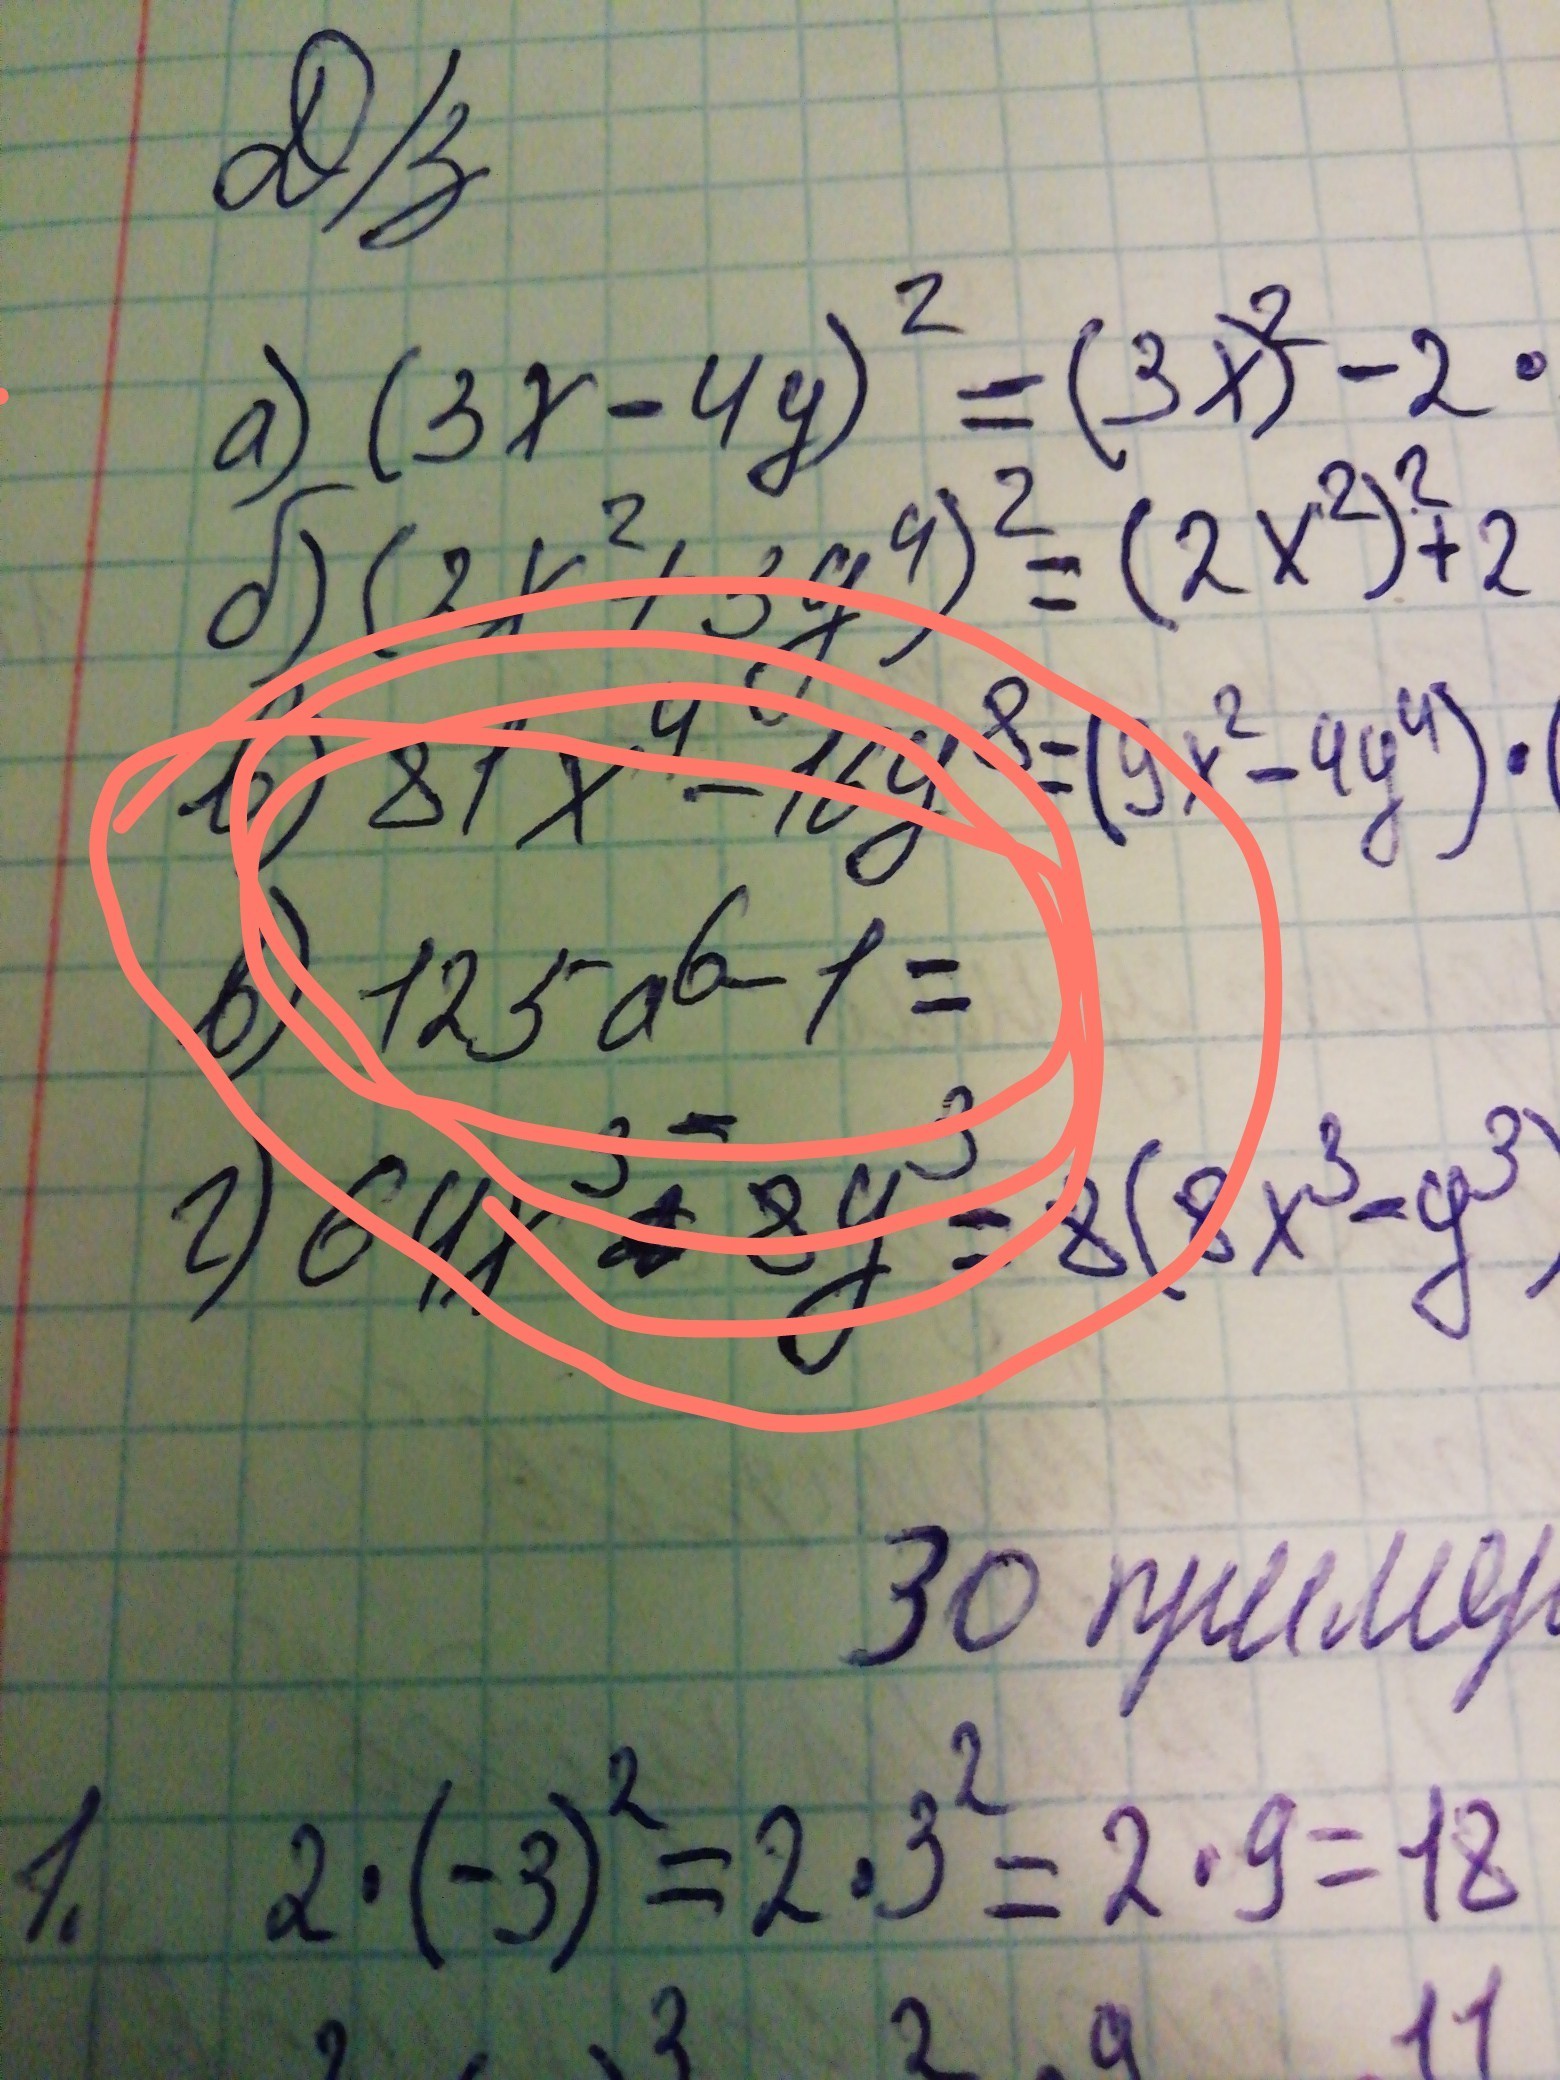 Д/з
а) (3x - 4y)² = (3x)² - 2 ·
б) (2x² + 3y⁴)² = (2x²)² + 2
в) 81x⁴ - 16y⁸ = (9x² - 4y⁴) · (
в) 125a⁶ - 1 =
г) 64x³ - 8y³ = 8(8x³ - y³)
30 пример
1. 2 · (-3)² = 2 · 3² = 2 · 9 = 18